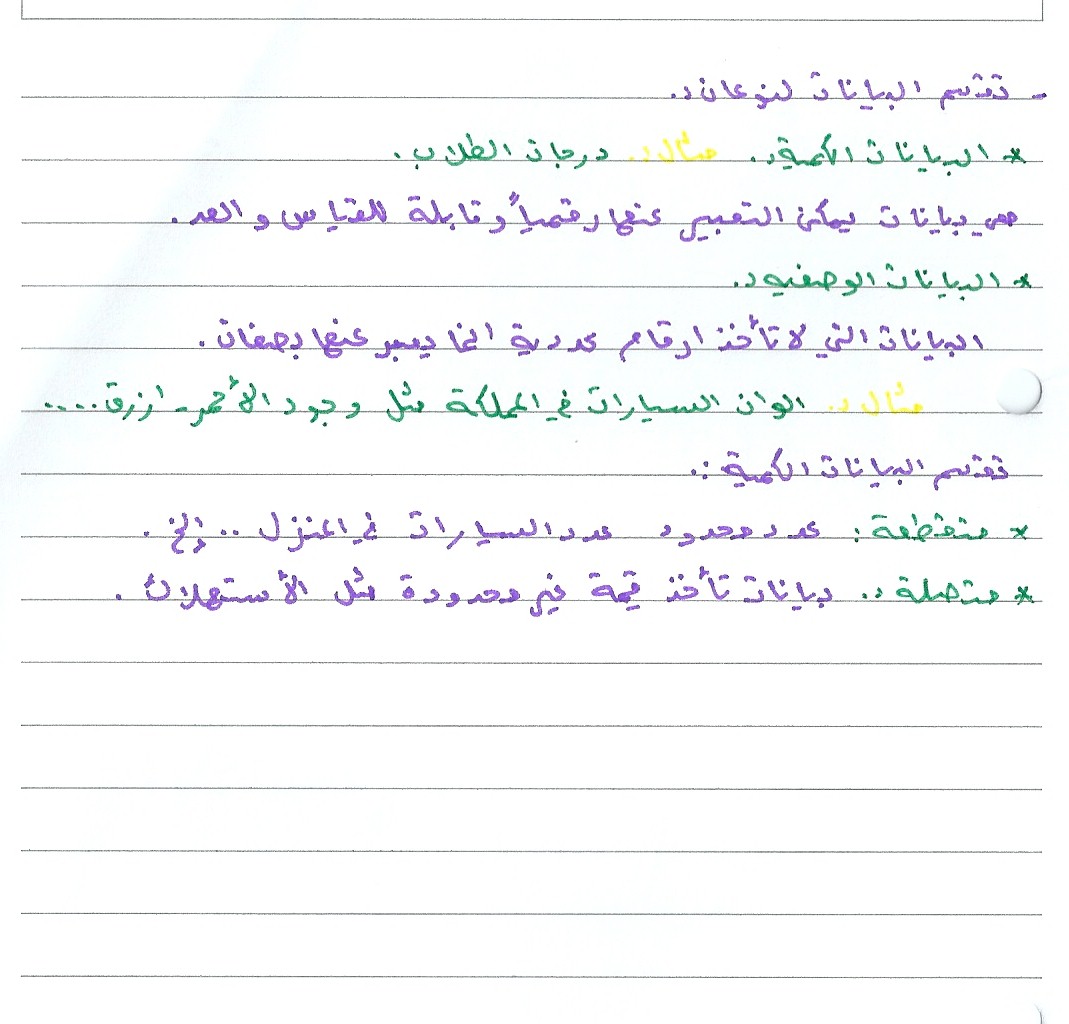 - تقسم البيانات لنوعان :.
* البيانات الكمية :. مثال :. درجات الطلاب .
هي بيانات يمكن التعبير عنها رقمياً وقابلة للقياس والعد .
* البيانات الوصفيه :.
البيانات التي لا تأخذ ارقام عددية انما يعبر عنها بصفات .
مثال :. الوان السيارات في المملكة مثل وجود الأحمر - ازرق ....
تقسم البيانات الكمية :.
* متقطعة : عدد محدود عدد السيارات في المنزل .. إلخ .
* متصلة :. بيانات تأخذ قيمة غير محدودة مثل الأستهلاك .